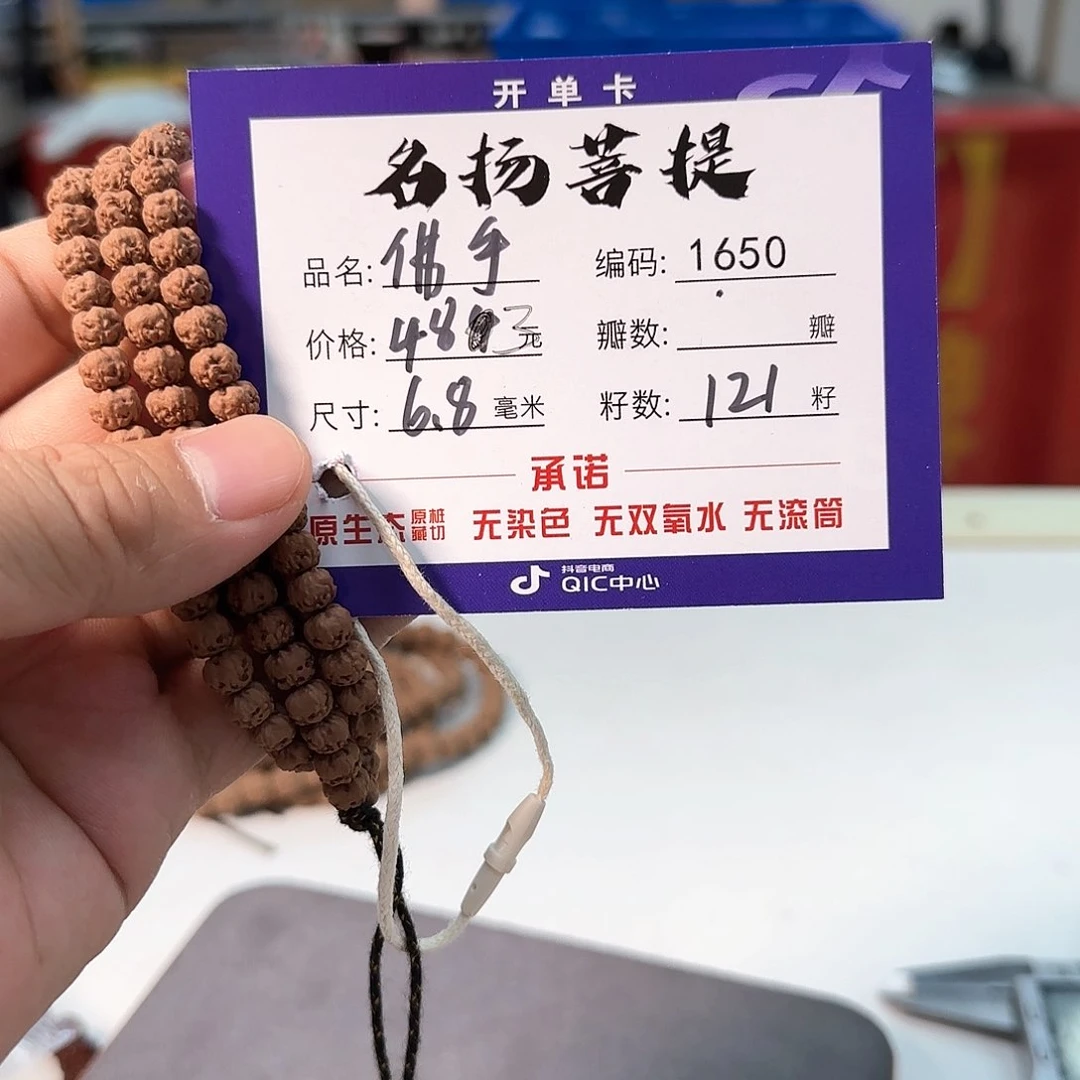 开单卡
名扬菩提
品名: 佛手 编码: 1650
价格: 483元 瓣数: 瓣
尺寸: 6.8 毫米 籽数: 121 籽
承诺
原生态 原桩藏切 无染色 无双氧水 无滚筒
抖音电商
QIC中心